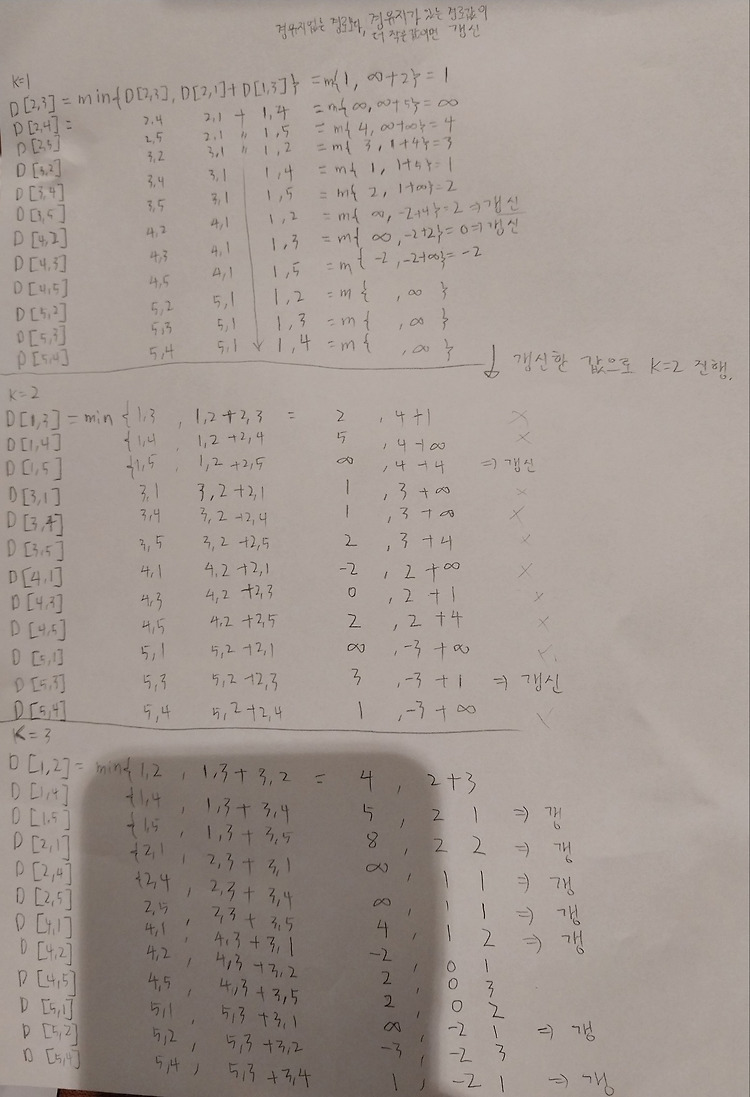 경유지없는 경로보다, 경유지가 있는 경로값이
더 작은값이면 갱신
K=1
D[2,3] = min{D[2,3], D[2,1]+D[1,3]} = m{1, ∞+2} = 1
D[2,4] = 2,4 2,1 + 1,4 = m{∞, ∞+5} = ∞
D[2,5] 2,5 2,1 〃 1,5 = m{4, ∞+∞} = 4
D[3,2] 3,2 3,1 〃 1,2 = m{3, 1+4} = 3
D[3,4] 3,4 3,1 1,4 = m{1, 1+5} = 1
D[3,5] 3,5 3,1 1,5 = m{2, 1+∞} = 2
D[4,2] 4,2 4,1 1,2 = m{∞, -2+4} = 2 ⇒ 갱신
D[4,3] 4,3 4,1 1,3 = m{∞, -2+2} = 0 ⇒ 갱신
D[4,5] 4,5 4,1 1,5 = m{-2, -2+∞} = -2
D[5,2] 5,2 5,1 1,2 = m{ , ∞ }
D[5,3] 5,3 5,1 1,3 = m{ , ∞ }
D[5,4] 5,4 5,1 1,4 = m{ , ∞ }
↓ 갱신한 값으로 K=2 진행.
K=2
D[1,3] = min{1,3 , 1,2+2,3 = 2 , 4+1 ×
D[1,4] {1,4 , 1,2+2,4 5 , 4+∞ ×
D[1,5] {1,5 , 1,2+2,5 ∞ , 4+4 ⇒ 갱신
D[3,1] 3,1 3,2+2,1 1 , 3+∞ ×
D[3,4] 3,4 3,2+2,4 1 , 3+∞ ×
D[3,5] 3,5 3,2+2,5 2 , 3+4 ×
D[4,1] 4,1 4,2+2,1 -2 , 2+∞ ×
D[4,3] 4,3 4,2+2,3 0 , 2+1 ×
D[4,5] 4,5 4,2+2,5 2 , 2+4 ×
D[5,1] 5,1 5,2+2,1 ∞ , -3+∞ ×
D[5,3] 5,3 5,2+2,3 3 , -3+1 ⇒ 갱신
D[5,4] 5,4 5,2+2,4 1 , -3+∞ ×
K=3
D[1,2] = min{1,2 , 1,3+3,2 = 4 , 2+3
D[1,4] {1,4 , 1,3+3,4 5 , 2 1 ⇒ 갱
D[1,5] {1,5 , 1,3+3,5 8 , 2 2 ⇒ 갱
D[2,1] {2,1 , 2,3+3,1 ∞ , 1 1 ⇒ 갱
D[2,4] {2,4 , 2,3+3,4 ∞ , 1 1 ⇒ 갱
D[2,5] 2,5 , 2,3+3,5 4 , 1 2 ⇒ 갱
D[4,1] 4,1 , 4,3+3,1 -2 , 0 1
D[4,2] 4,2 , 4,3+3,2 2 , 0 3
D[4,5] 4,5 , 4,3+3,5 2 , 0 2
D[5,1] 5,1 , 5,3+3,1 ∞ , -2 1 ⇒ 갱
D[5,2] 5,2 , 5,3+3,2 -3 , -2 3
D[5,4] 5,4 , 5,3+3,4 1 , -2 1 ⇒ 갱